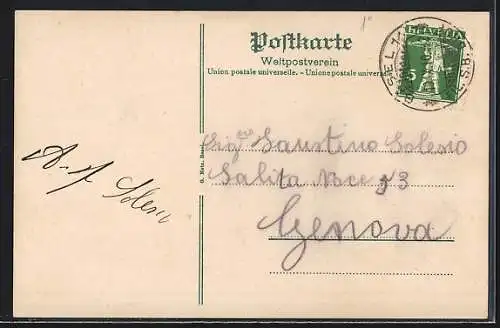 Postkarte
Weltpostverein
Union postale universelle. - Unione postale universale
HELVETIA
5
BASEL 1
Sigre Faustino Solesio
Salita Noce 33
Genova
A. Solesio